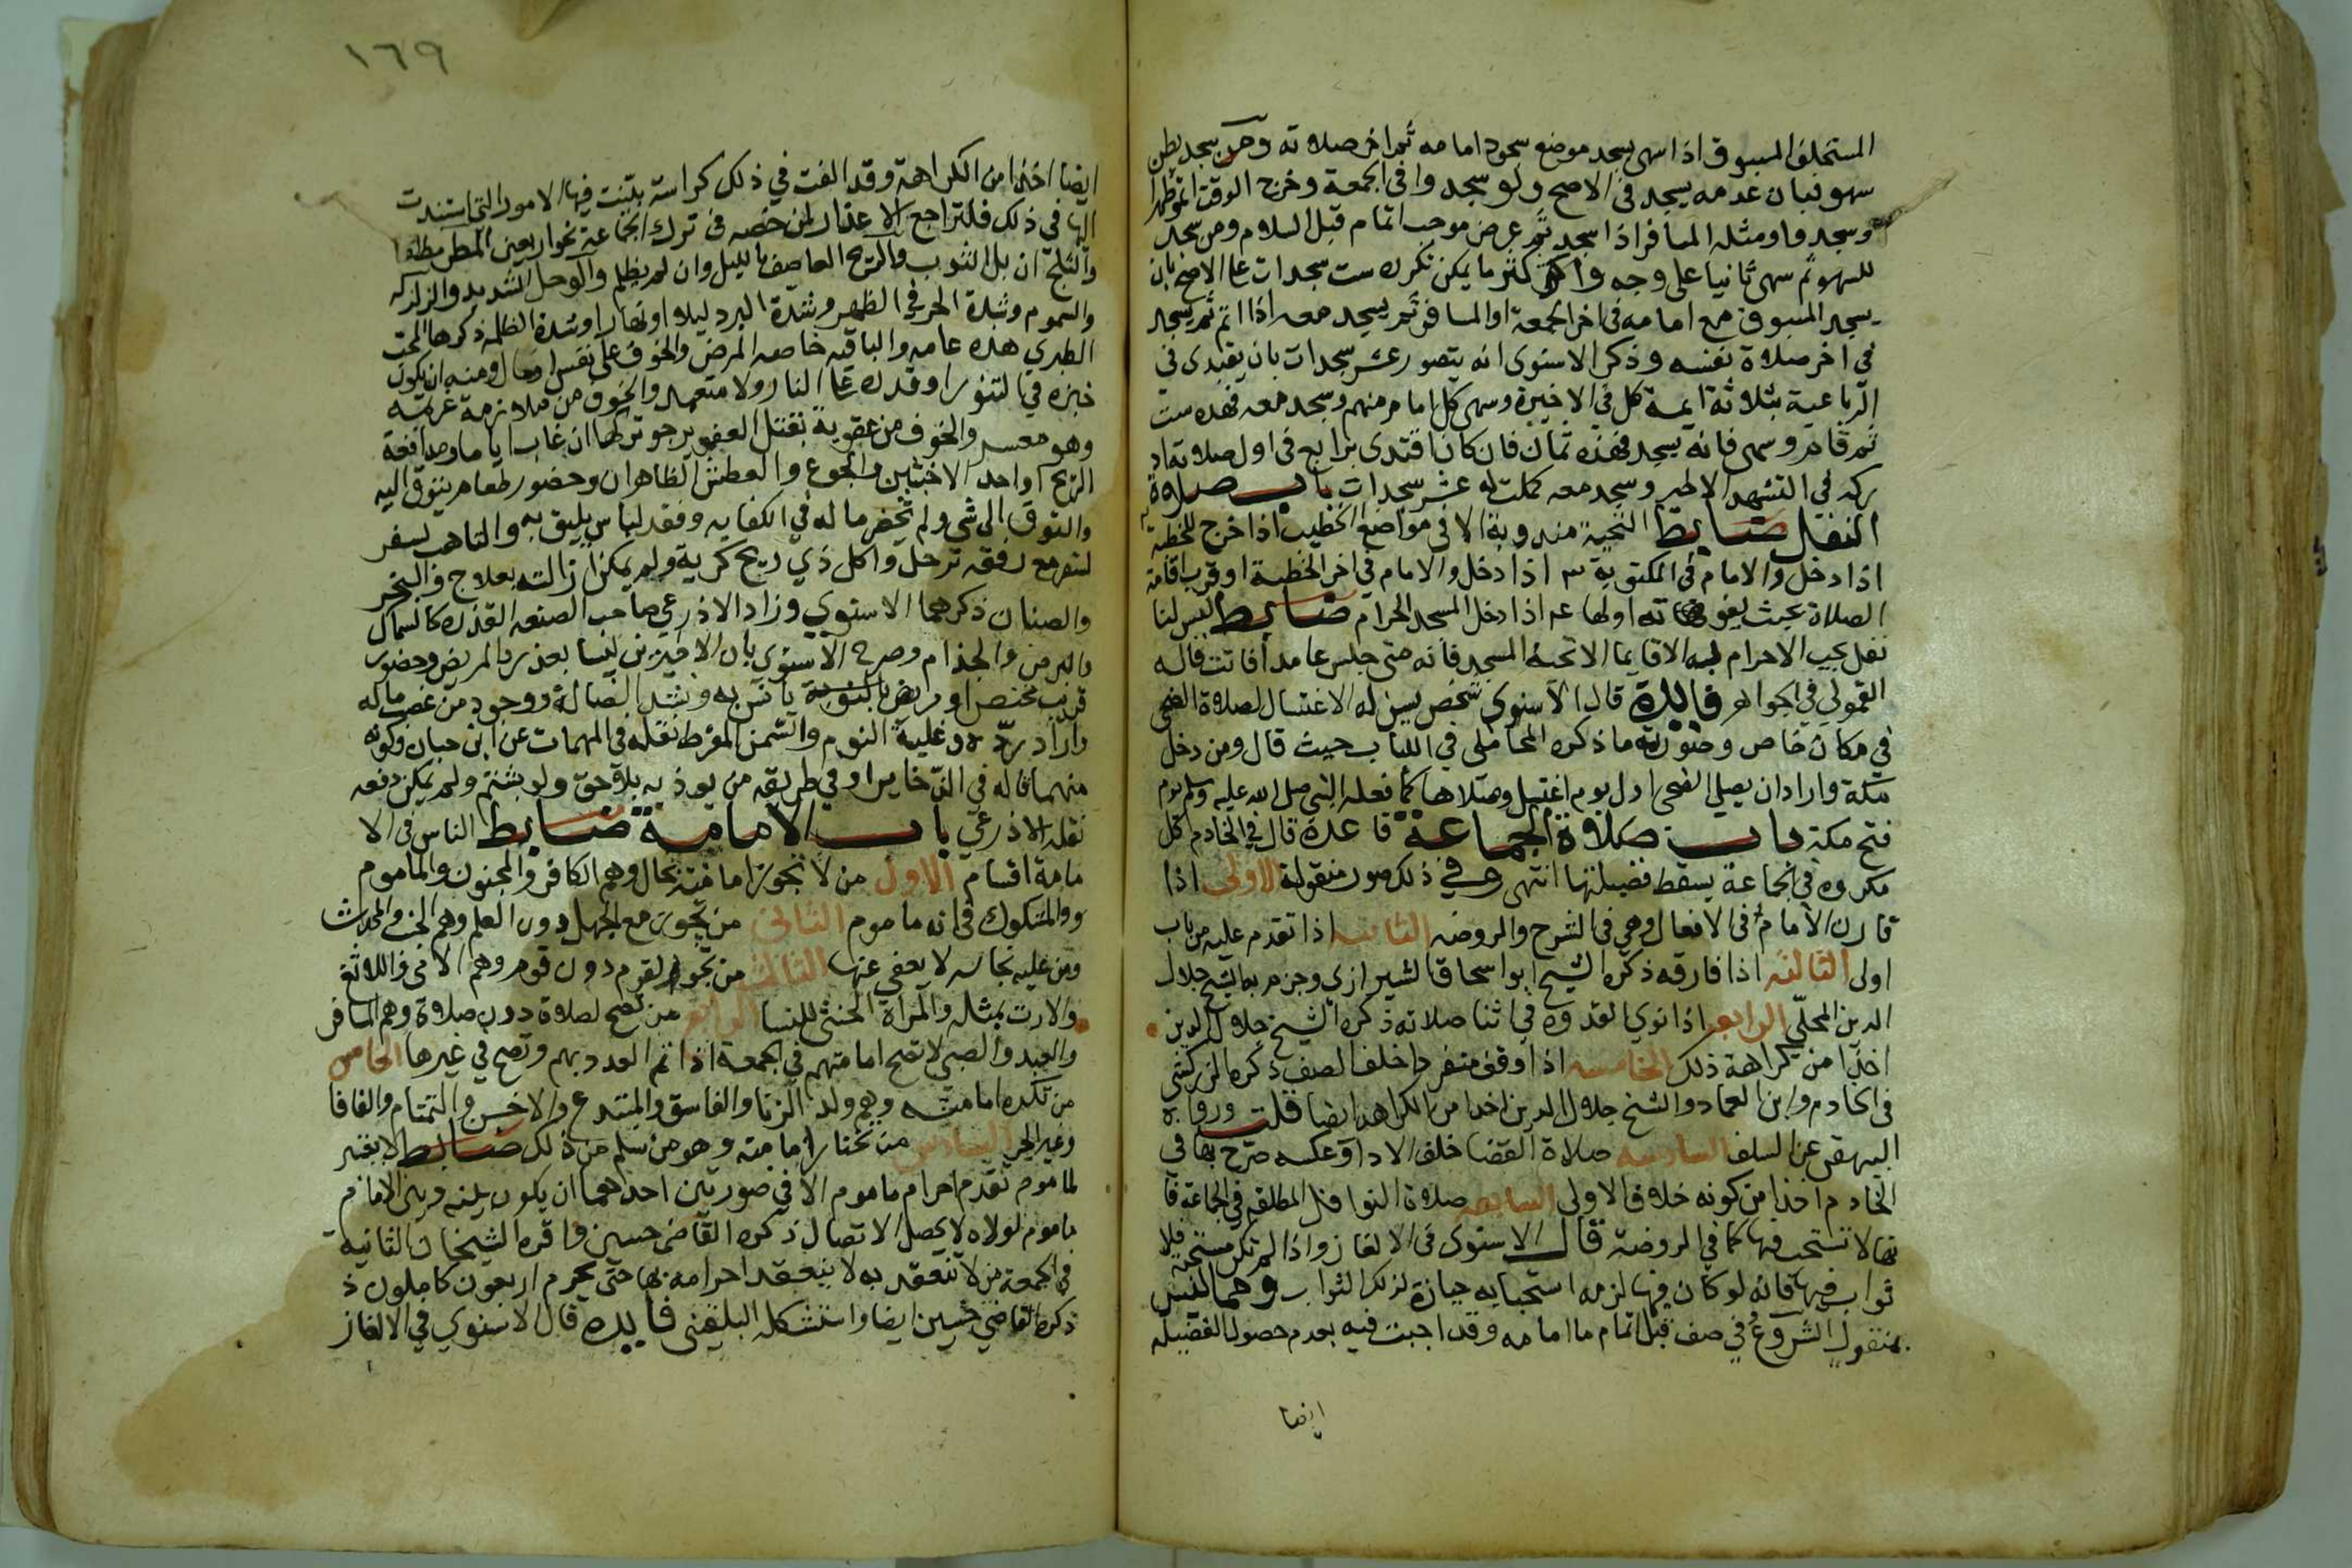 المستخلف المسبوق اذا سهى يسجد موضع سجود امامه ثم اخر صلاته ومن سجد يظن
سهو فبان عدمه يسجد في الاصح ولو سجدوا في الجمعة وخرج الوقت اتموا ظهرا
وسجدوا ومثله المسافر اذا سجد ثم عرض موجب اتمام قبل السلام ومن سجد
للسهو ثم سهى ثانيا على وجه واكثر ما يمكن تكرره ست سجدات على الاصح بان
يسجد المسبوق مع امامه في اخر الجمعة او المسافر ثم يسجد معه اذا اتم ثم يسجد
في اخر صلاة نفسه وذكر الاسنوى انه يتصور عشر سجدات بان يقتدى في
الرباعية بثلاثة ايمة كل في الاخيرة وسهى كل امام منهم وسجد معه فهذه ست
ثم قام وسهى فانه يسجد فهذه ثمان فان كان اقتدى برابع في اول صلاته اد
ركه في التشهد الاخير وسجد معه كملت له عشر سجدات باب صلاة
النفل ضابط التحية مندوبة الا في مواضع الخطيب اذا خرج للخطبة
اذا دخل والامام في المكتوبة ٣ اذا دخل والامام في اخر الخطبة او قرب اقامة
الصلاة بحيث يفوته اولها ٤ اذا دخل المسجد الحرام ضابط ليس لنا
نفل يجب الاحرام به الا قايما الا تحية المسجد فانه متى جلس عامدا فاتت قاله
القمولي في الجواهر فايدة قال الاسنوى شخص يسن له الاغتسال لصلاة الضحى
في مكان خاص وصورته ما ذكره المحاملى في اللباب حيث قال ومن دخل
مكة واراد ان يصلي الضحى اول يوم اغتسل وصلاها كما فعله النبى صلى الله عليه وسلم يوم
فتح مكة باب صلاة الجماعة قاعدة قال في الخادم كل
مكروه في الجماعة يسقط فضيلتها انتهى وفي ذلك صور منقولة الاولى اذا
قارن الامام في الافعال وهي في الشرح والروضه الثانيه اذا تقدم عليه من باب
اولى الثالثه اذا فارقه ذكره الشيخ ابو اسحاق الشيرازي وجزم بها الشيخ جلال
الدين المحلي الرابعه اذا نوى القدوة في اثنا صلاته ذكره الشيخ جلال الدين
اخذا من كراهة ذلك الخامسه اذا وقف منفردا خلف الصف ذكره الزركشى
في الخادم وابن العماد والشيخ جلال الدين اخذا من الكراهة ايضا قلت ورواه
البيهقى عن السلف السادسه صلاة القضا خلف الادا وعكسه صرح بها في
الخادم اخذا من كونه خلاف الاولى السابعه صلاة النوافل المطلقه في الجماعة فا
نها لا تستحب فيها كما في الروضة قال الاسنوى في الالغاز واذا لم تكن مستحبة فلا
ثواب فيها فانه لو كان فيها لزمه استحبابه حيازة لذلك الثواب ومما ليس
بمنقول الشروع في صف قبل اتمام ما امامه وقد اجبت فيه بعدم حصول الفضيله
ايضا
١٦٩
ايضا اخذا من الكراهة وقد الفت في ذلك كراسة بينت فيها الامور التي استندت
اليها في ذلك فلتراجع الاعذار المرخصه في ترك الجماعة نحو اربعين المطر مطلقا
والثلج ان بل الثوب والريح العاصف بالليل وان لم يظلم والوحل الشديد والزلزله
والسموم وشدة الحر في الظهر وشدة البرد ليلا او نهارا وشدة الظلمه ذكرها المحب
الطبري هذه عامه والباقيه خاصه المرض والخوف على نفس او مال ومنه ان يكون
خبزه في التنور او قدره على النار ولا متعهد والخوف من ملازمة غريمه
وهو معسر والخوف من عقوبة تقبل العفو يرجو تركها ان غاب اياما ومدافعة
الريح او احد الاخبثين والجوع والعطش الظاهران وحضور طعام يتوق اليه
والتوق الى شي ولم يحضر ما له في الكفايه وفقد لباس يليق به والتاهب لسفر
لتفر مع رفقه ترحل واكل ذي ريح كريه ولم يمكن ازالته بعلاج والبخر
والصنان ذكرهما الاسنوي وزاد الاذرعي صاحب الصنعه القذره كالسماك
والبرص والجذام وصرح الاسنوي بان الاخيرين ليسا بعذر بالمريض وحضور
قريب محتضر او مريض يانس به ونشد الضالة ووجود من غصب ماله
واراد رده وغلبة النوم والسمن المفرط نقله في المهمات عن ابن حبان وكونه
منهما قاله في الذخاير او في طريقه من يوذيه بلا حق ولو بشتم ولم يمكن دفعه
نقله الاذرعي باب الامامة ضابط الناس في الا
مامة اقسام الاول من لا تجوز امامته بحال وهم الكافر والمجنون والماموم
والمشكوك في انه ماموم الثانى من تجوز مع الجهل دون العلم وهم الجنب والمحدث
ومن عليه نجاسه لا يعفى عنها الثالث من تجوز لقوم دون قوم وهم الامى والالثغ
والارت بمثله والمراة الخنثى للنسا الرابع من تصح لصلاة دون صلاة وهم المسافر
والعبد والصبي لا تصح امامتهم في الجمعة اذا تم العدد بهم وتصح في غيرها الخامس
من تكره امامته وهم ولد الزنا والفاسق والمبتدع والاخرس والتمتام والفافا
وغير الحر السادس من تختار امامته وهو من سلم من ذلك ضابط لا يعتبر
لماموم تقدم احرام ماموم الا في صورتين احداهما ان يكون بينه وبين الامام
ماموم لولاه لا يحصل الاتصال ذكره القاضى حسين واقره الشيخان الثانيه
في الجمعة من لا تنعقد به لا ينعقد احرامه بها حتى يحرم اربعون كاملون ذ
ذكره القاضي حسين ايضا واستشكله البلقينى فايده قال الاسنوي في الالغاز